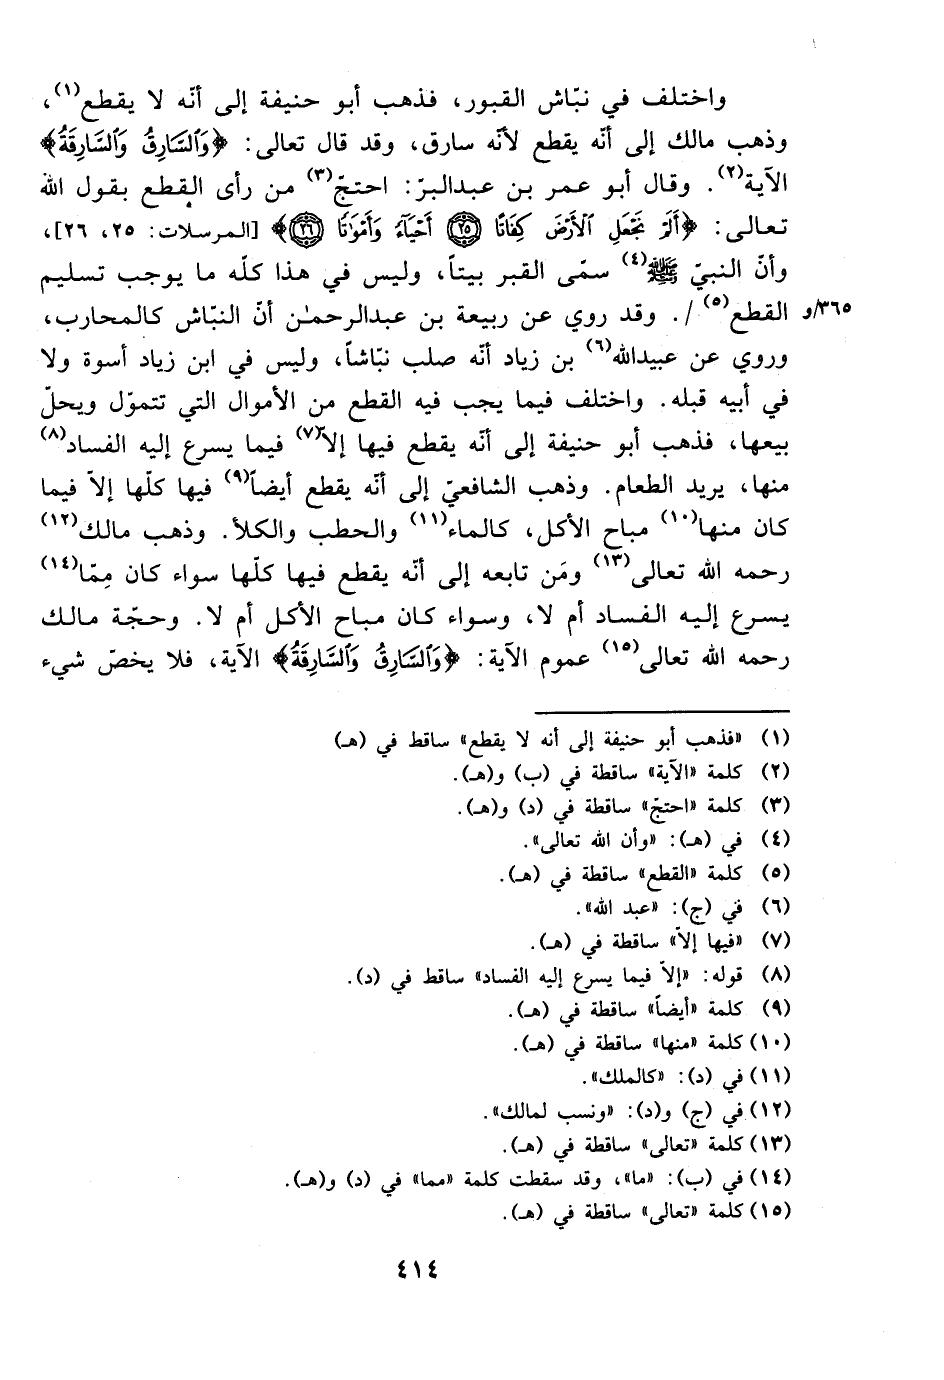 واختلف في نبّاش القبور، فذهب أبو حنيفة إلى أنّه لا يقطع(١)،
وذهب مالك إلى أنّه يقطع لأنّه سارق، وقد قال تعالى: ﴿وَٱلسَّارِقُ وَٱلسَّارِقَةُ﴾
الآية(٢). وقال أبو عمر بن عبدالبرّ: احتجّ(٣) من رأى القطع بقول الله
تعالى: ﴿أَلَمْ نَجْعَلِ ٱلْأَرْضَ كِفَاتًا ۝٢٥ أَحْيَآءً وَأَمْوَٰتًا ۝٢٦﴾ [المرسلات: ٢٥، ٢٦]،
وأنّ النبيّ ﷺ(٤) سمّى القبر بيتاً، وليس في هذا كلّه ما يوجب تسليم
٣٦٥/و القطع(٥) /. وقد روي عن ربيعة بن عبدالرحمٰن أنّ النبّاش كالمحارب،
وروي عن عبيدالله(٦) بن زياد أنّه صلب نبّاشاً، وليس في ابن زياد أسوة ولا
في أبيه قبله. واختلف فيما يجب فيه القطع من الأموال التي تتموّل ويحلّ
بيعها، فذهب أبو حنيفة إلى أنّه يقطع فيها إلاّ(٧) فيما يسرع إليه الفساد(٨)
منها، يريد الطعام. وذهب الشافعيّ إلى أنّه يقطع أيضاً(٩) فيها كلّها إلاّ فيما
كان منها(١٠) مباح الأكل، كالماء(١١) والحطب والكلأ. وذهب مالك(١٢)
رحمه الله تعالى(١٣) ومَن تابعه إلى أنّه يقطع فيها كلّها سواء كان مِمّا(١٤)
يسرع إليه الفساد أم لا، وسواء كان مباح الأكل أم لا. وحجّة مالك
رحمه الله تعالى(١٥) عموم الآية: ﴿وَٱلسَّارِقُ وَٱلسَّارِقَةُ﴾ الآية، فلا يخصّ شيء
(١) «فذهب أبو حنيفة إلى أنه لا يقطع» ساقط في (هـ)
(٢) كلمة «الآية» ساقطة في (ب) و(هـ).
(٣) كلمة «احتجّ» ساقطة في (د) و(هـ).
(٤) في (هـ): «وأن الله تعالى».
(٥) كلمة «القطع» ساقطة في (هـ).
(٦) في (ج): «عبد الله».
(٧) «فيها إلاّ» ساقطة في (هـ).
(٨) قوله: «إلاّ فيما يسرع إليه الفساد» ساقط في (د).
(٩) كلمة «أيضاً» ساقطة في (هـ).
(١٠) كلمة «منها» ساقطة في (هـ).
(١١) في (د): «كالملك».
(١٢) في (ج) و(د): «ونسب لمالك».
(١٣) كلمة «تعالى» ساقطة في (هـ).
(١٤) في (ب): «ما»، وقد سقطت كلمة «مما» في (د) و(هـ).
(١٥) كلمة «تعالى» ساقطة في (هـ).
٤١٤